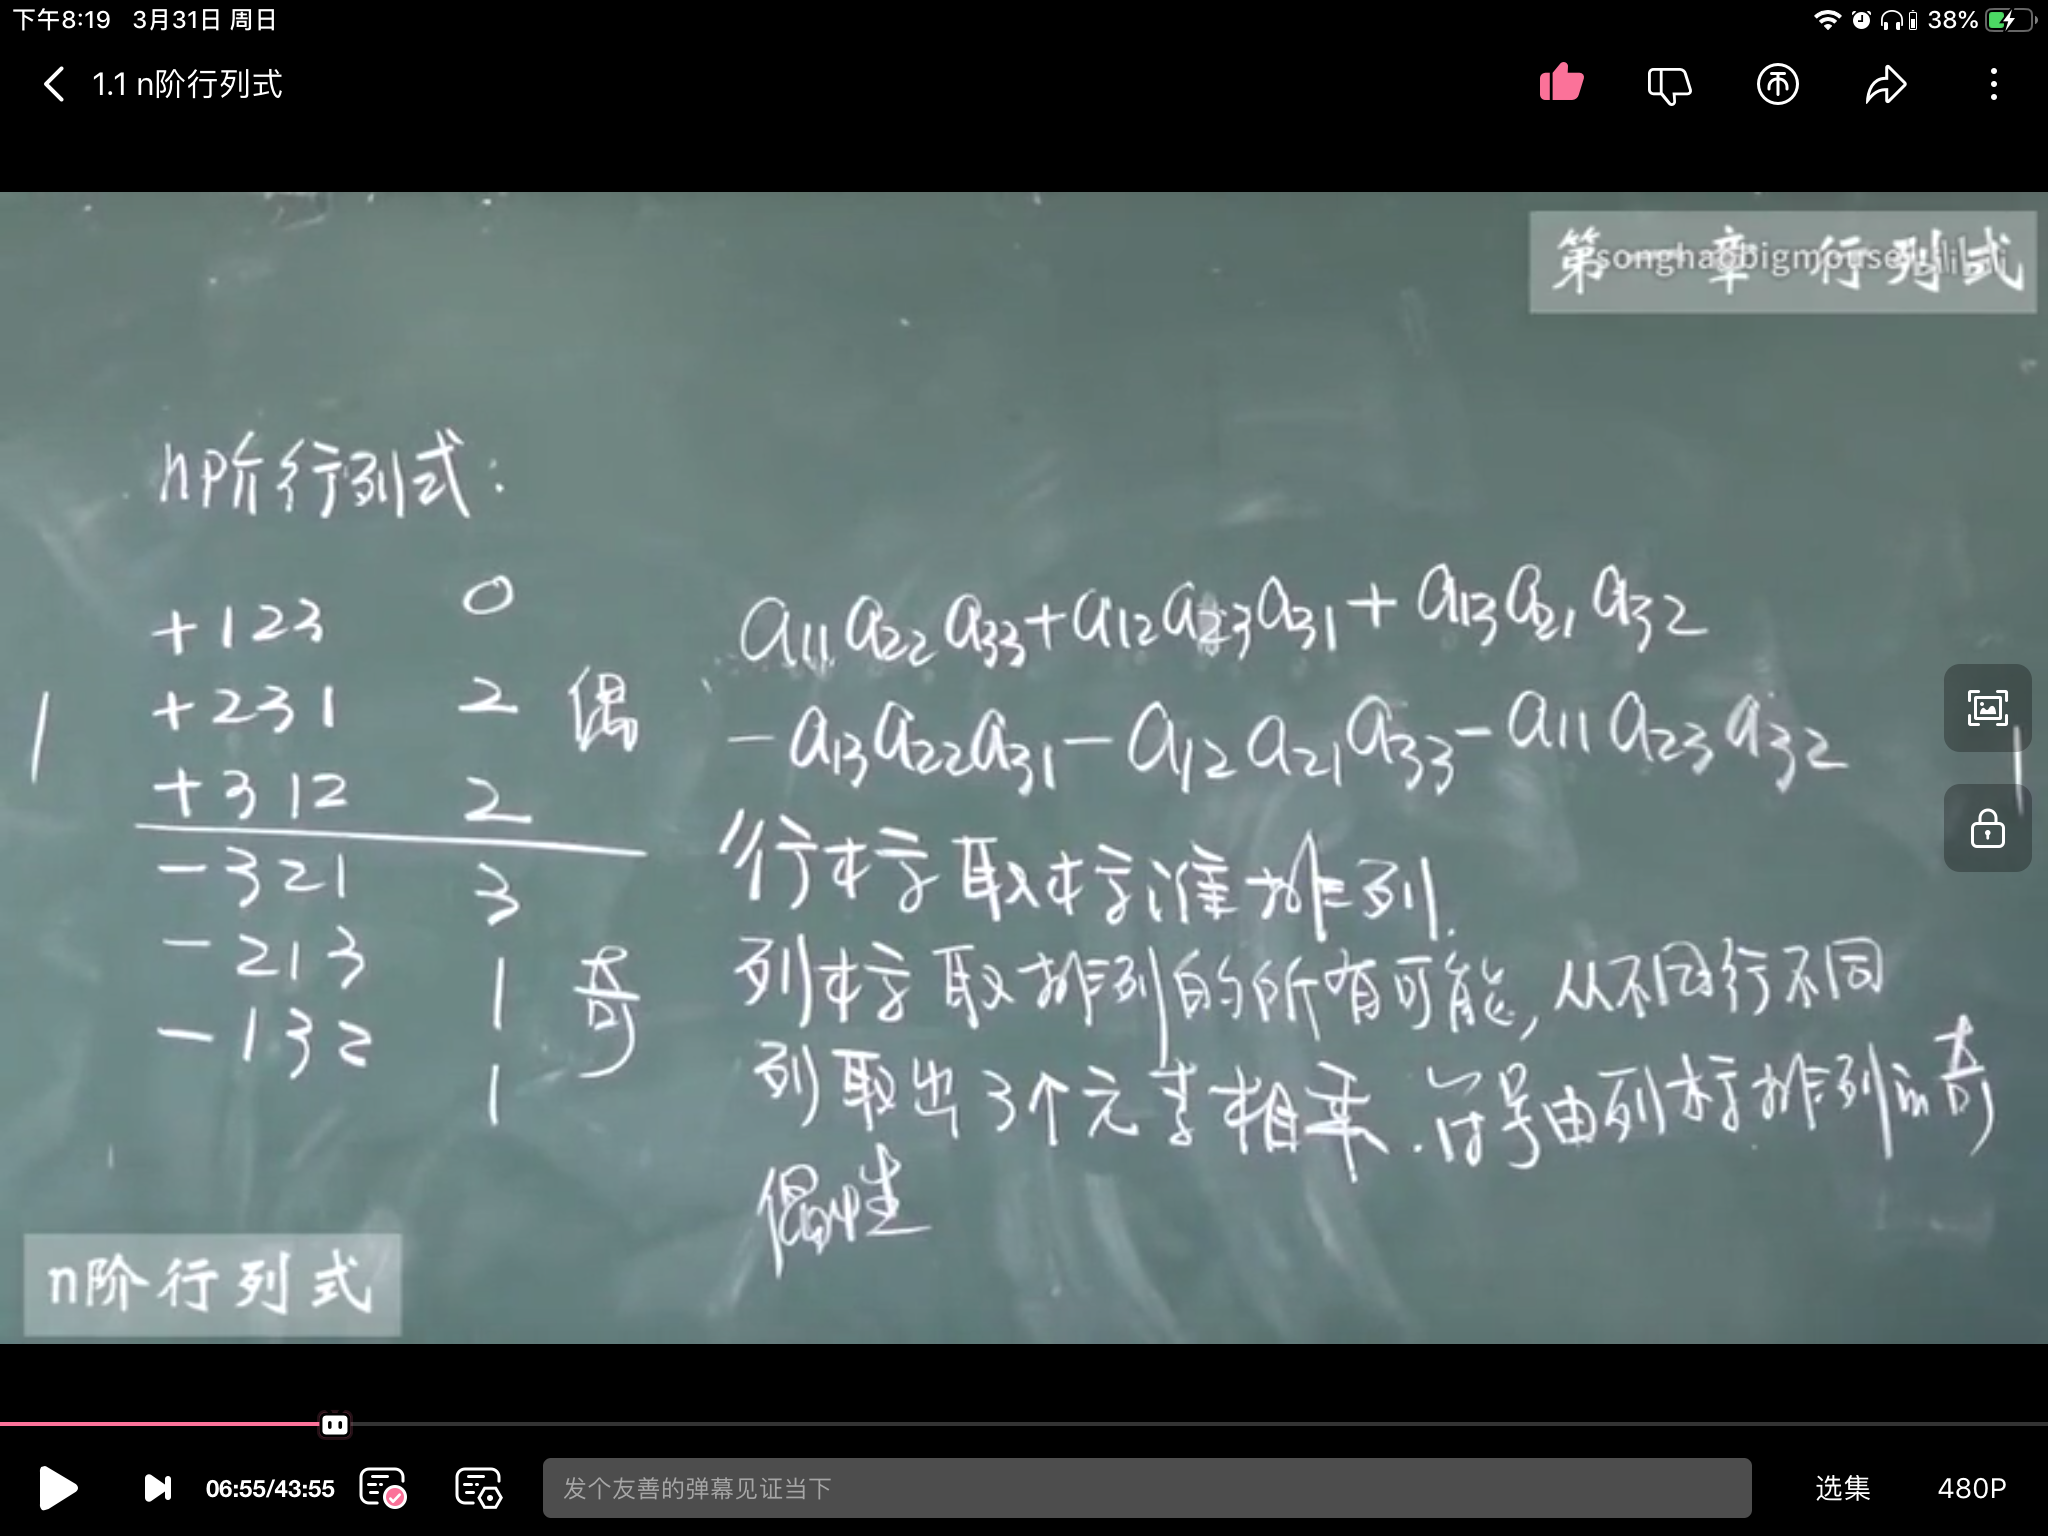 下午8:19 3月31日 周日
38%
1.1 n阶行列式
第一章 行列式
n阶行列式:
+123 0
+231 2 偶
+312 2
-321 3
-213 1 奇
-132 1
a11a22a33+a12a23a31+a13a21a32
-a13a22a31-a12a21a33-a11a23a32
行标取标准排列.
列标取排列的所有可能,从不同行不同
列取出3个元素相乘.符号由列标排列的奇
偶性
n阶行列式
06:55/43:55
发个友善的弹幕见证当下
选集
480P